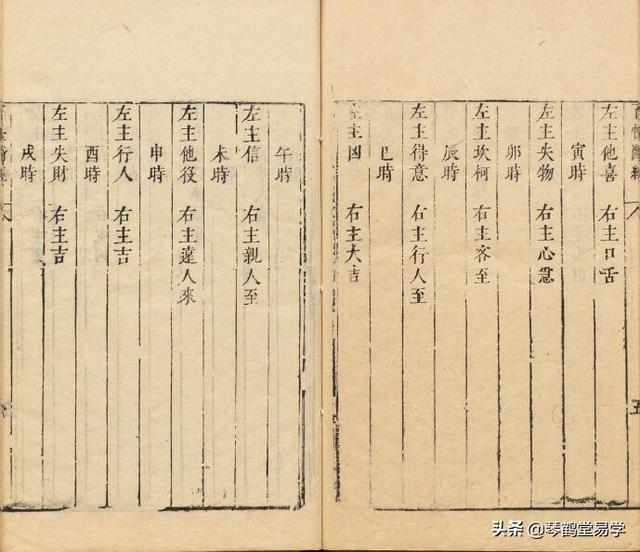 左主他喜 右主口舌
寅時
左主失物 右主心急
卯時
左主坎柯 右主客至
辰時
左主得意 右主行人至
巳時
左主凶 右主大吉
午時
左主信 右主親人至
未時
左主他役 右主遠人來
申時
左主行人 右主吉
酉時
左主失財 右主吉
戌時
头条 @琴鹤堂易学